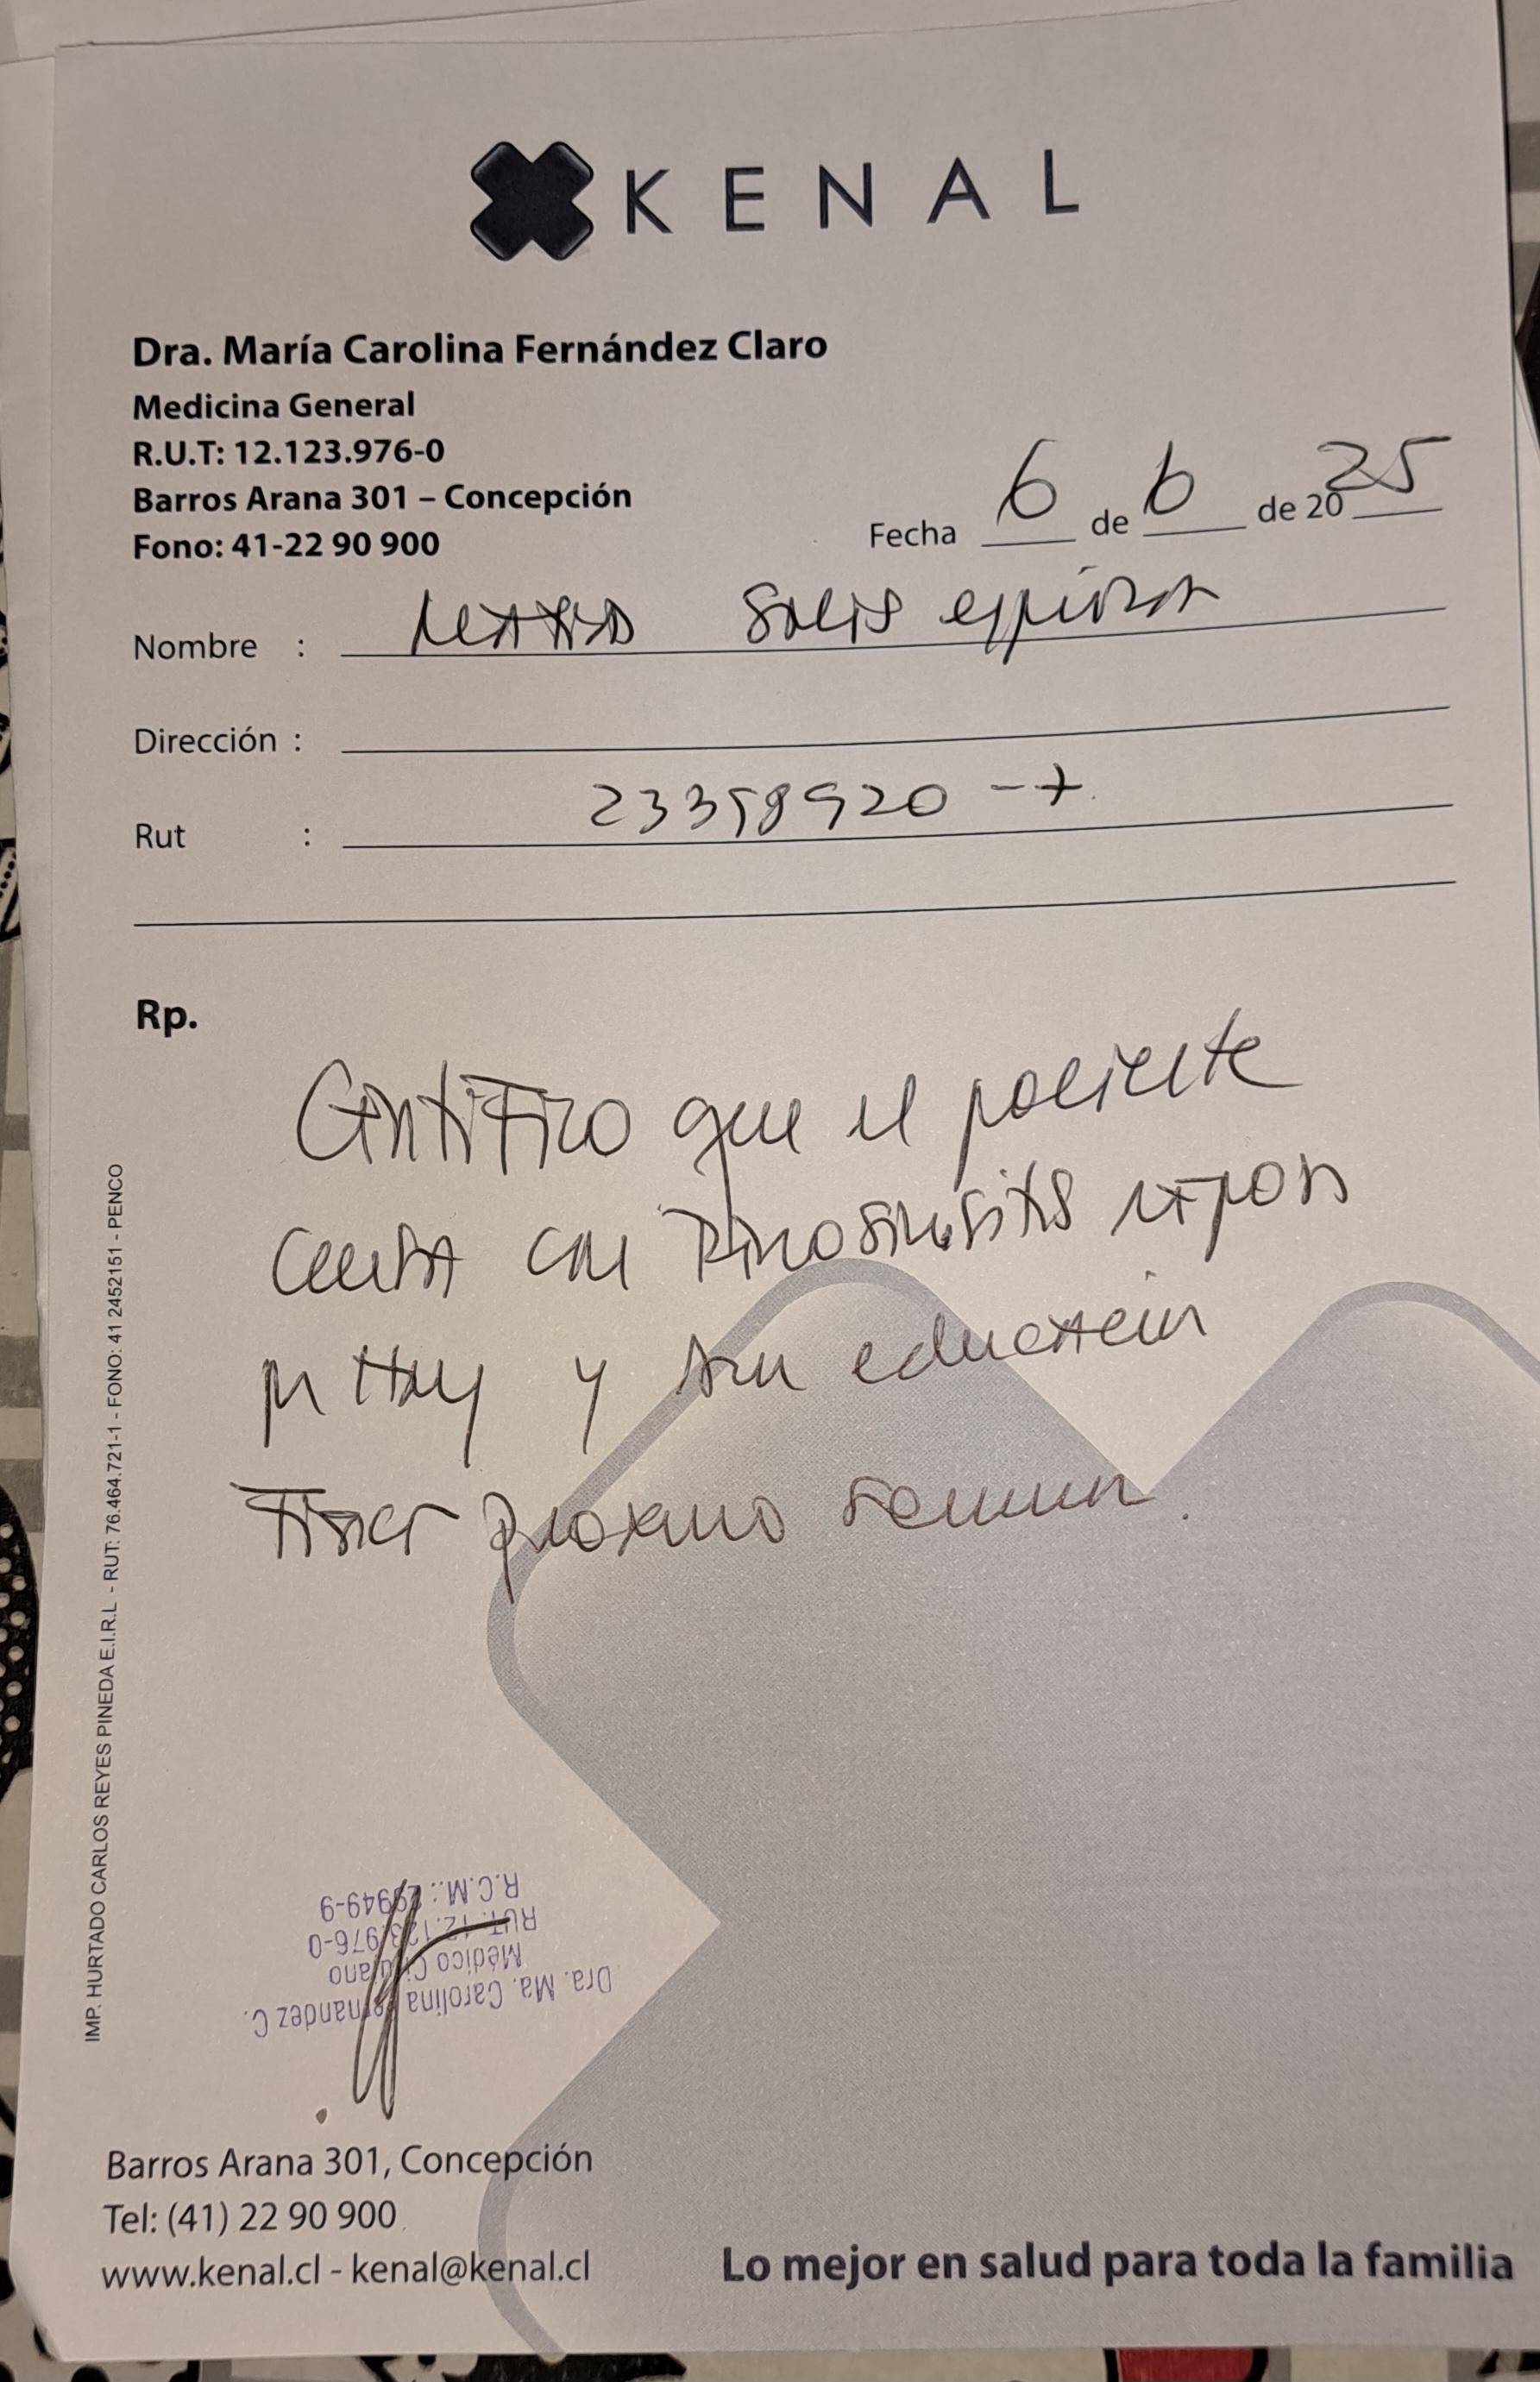 KENAL
Dra. María Carolina Fernández Claro
Medicina General
R.U.T: 12.123.976-0
Barros Arana 301 – Concepción
Fono: 41-22 90 900
Fecha 6 de 6 de 2025
Nombre : Solis espinoza
Dirección :
Rut : 23358920 -
Rp.
Certifico que el paciente
cursa con Rinosinusitis reposo
hoy y sin educación
Física próxima semana.
IMP. HURTADO CARLOS REYES PINEDA E.I.R.L - RUT: 76.464.721-1 - FONO: 41 2452151 - PENCO
Dra. Ma. Carolina Fernandez C.
Médico Cirujano
RUT: 12.123.976-0
R.C.M.: 9949-9
Barros Arana 301, Concepción
Tel: (41) 22 90 900
www.kenal.cl - kenal@kenal.cl
Lo mejor en salud para toda la familia